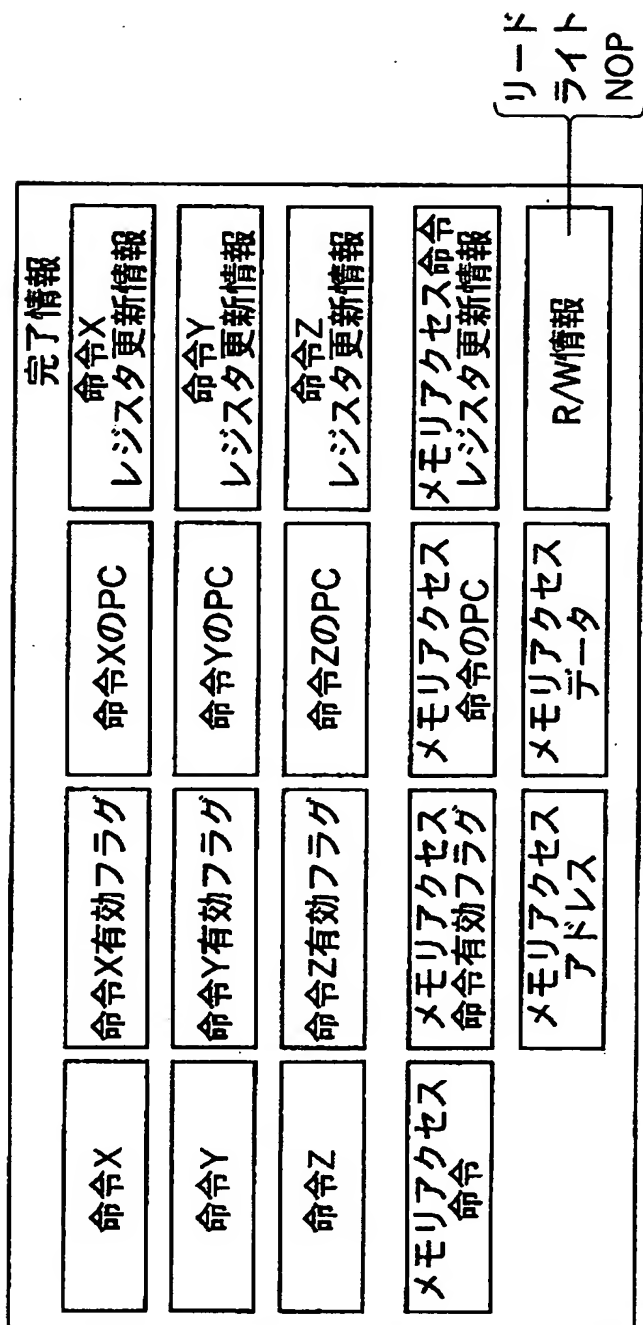 完了情報
命令X
命令X有効フラグ
命令XのPC
命令X
レジスタ更新情報
命令Y
命令Y有効フラグ
命令YのPC
命令Y
レジスタ更新情報
命令Z
命令Z有効フラグ
命令ZのPC
命令Z
レジスタ更新情報
メモリアクセス
命令
メモリアクセス
命令有効フラグ
メモリアクセス
命令のPC
メモリアクセス命令
レジスタ更新情報
メモリアクセス
アドレス
メモリアクセス
データ
R/W情報
リード
ライト
NOP